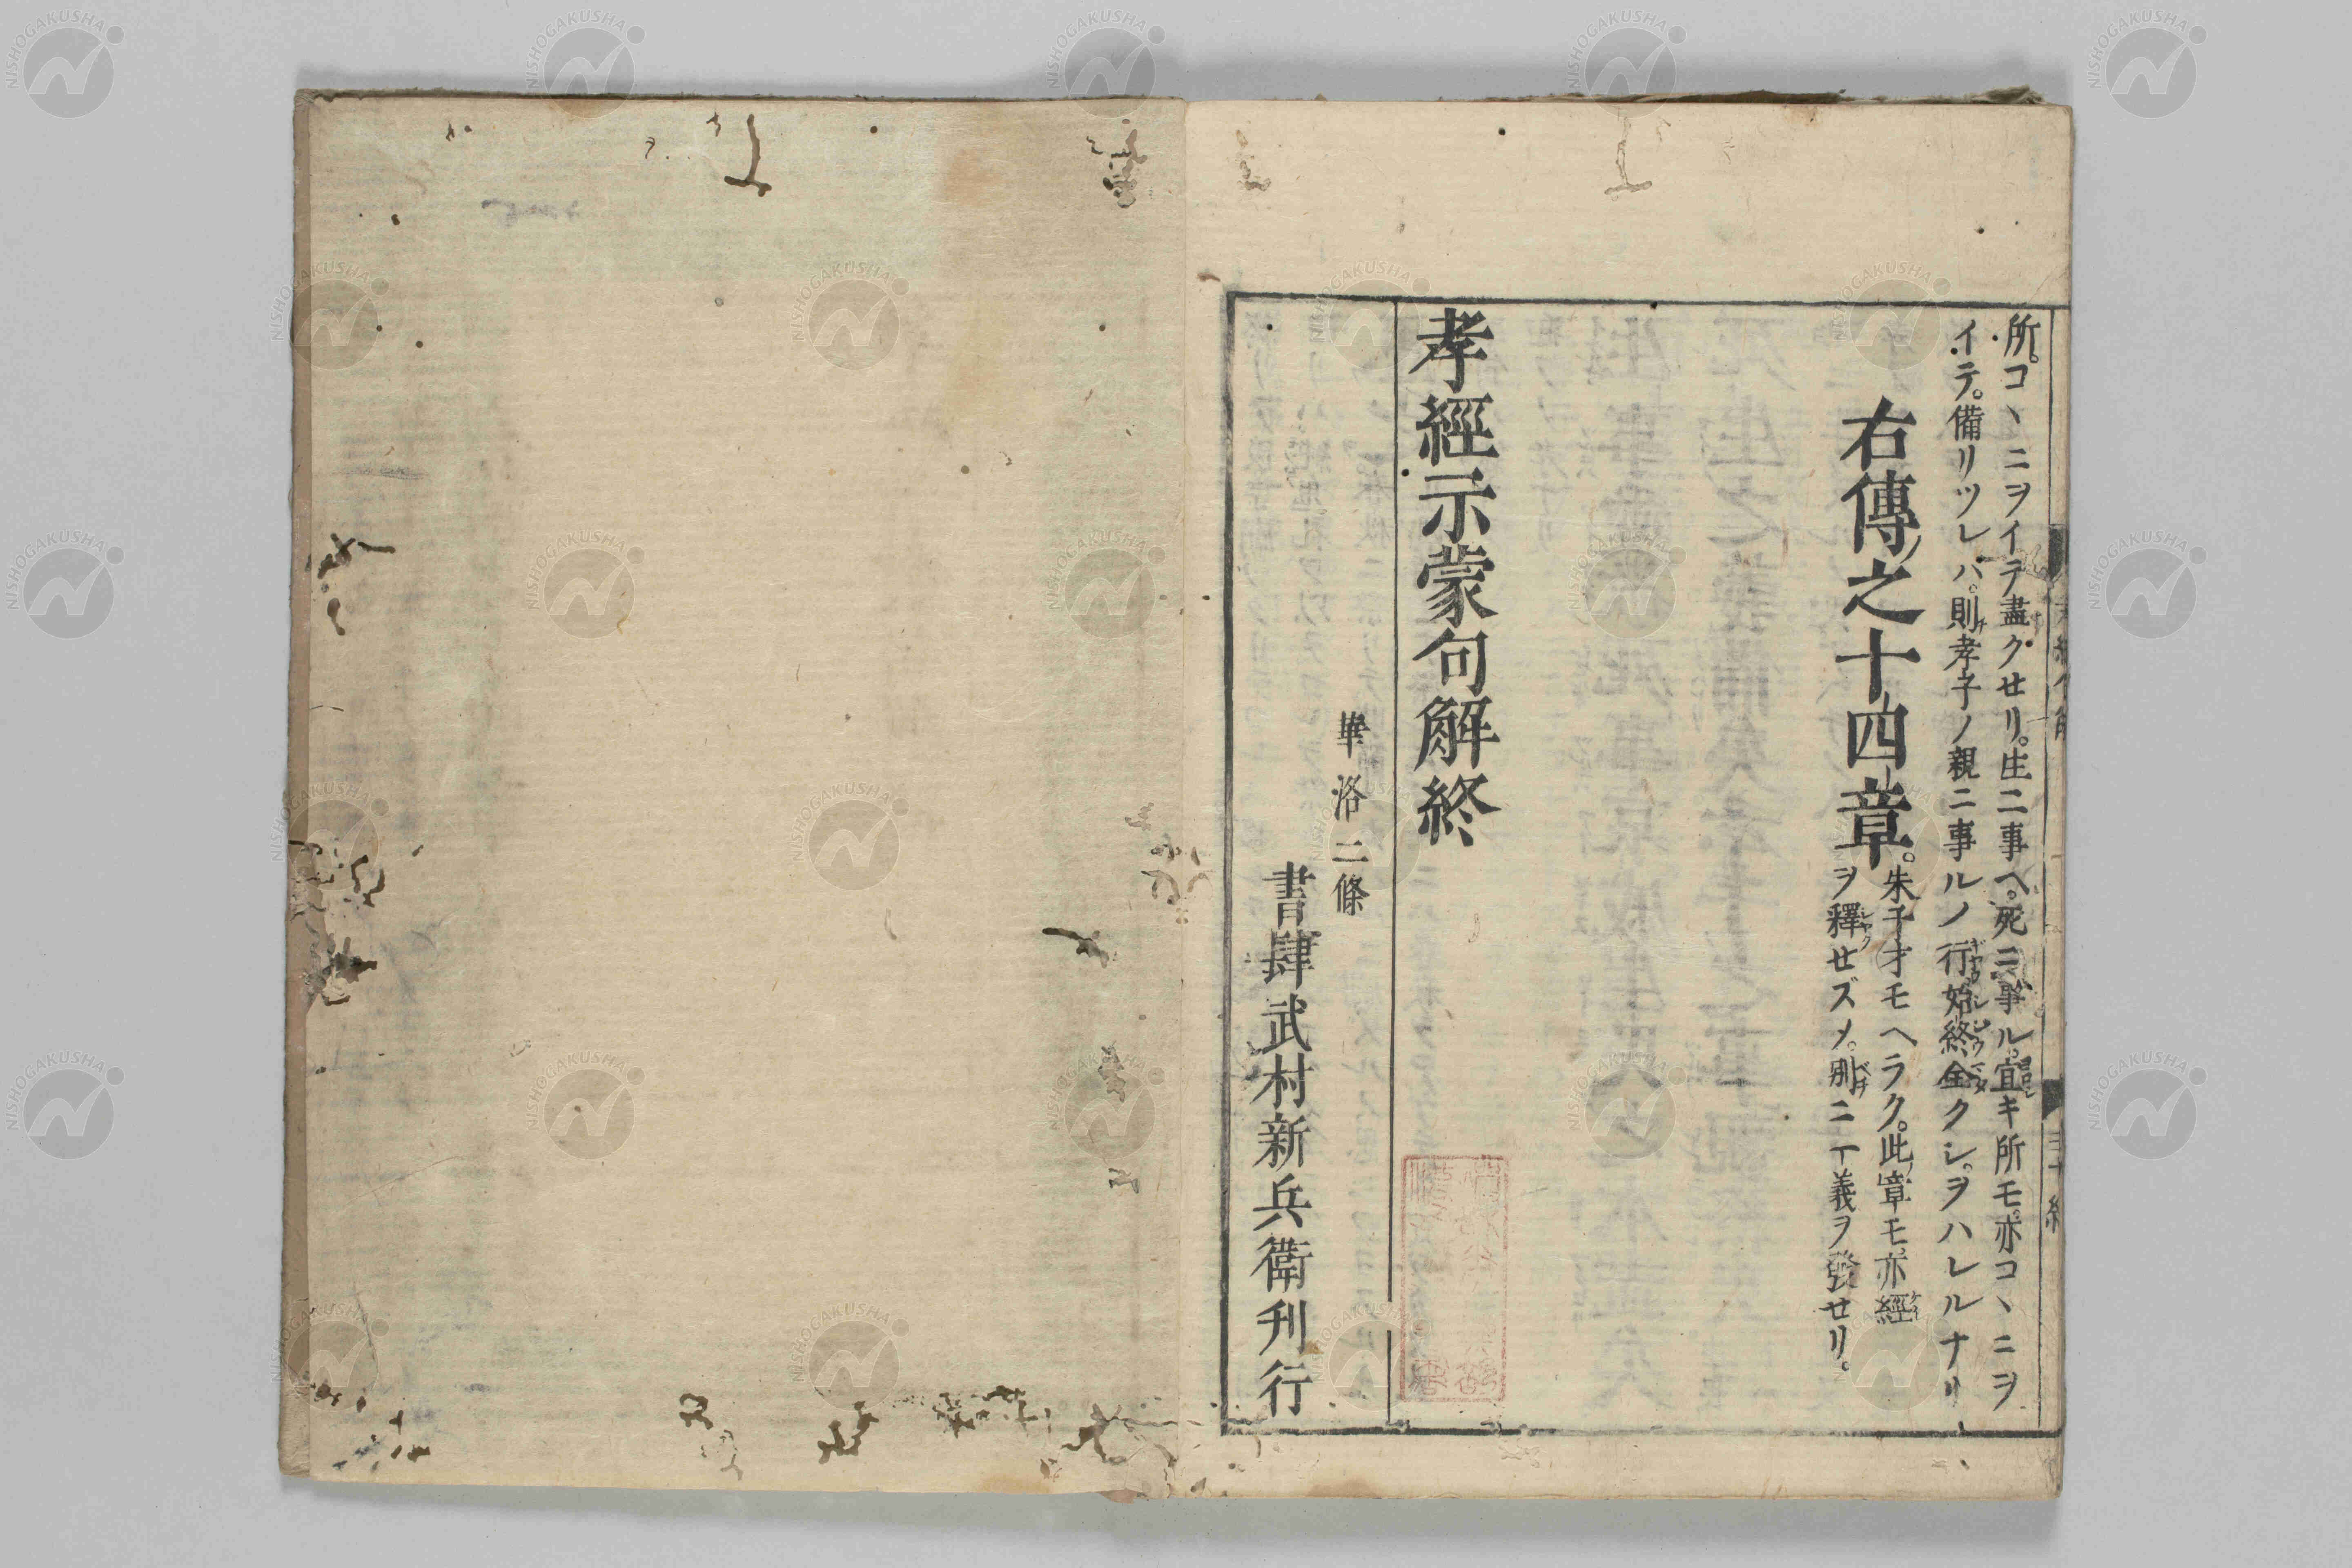 所。コヽニヲイテ盡クせリ。生ニ事ヘ。死ニ事ル。宜キ所モ。亦コヽニヲ
イテ。備リツレバ。則孝子ノ親ニ事ルノ行始終全クシ。ヲハレルナリ
右傳之十四章。
朱子オモヘラク。此章モ亦經
ヲ釋せズメ。別ニ一義ヲ發せリ。
孝經示蒙句解終
華洛二條
書肆武村新兵衛刊行
NISHOGAKUSHA